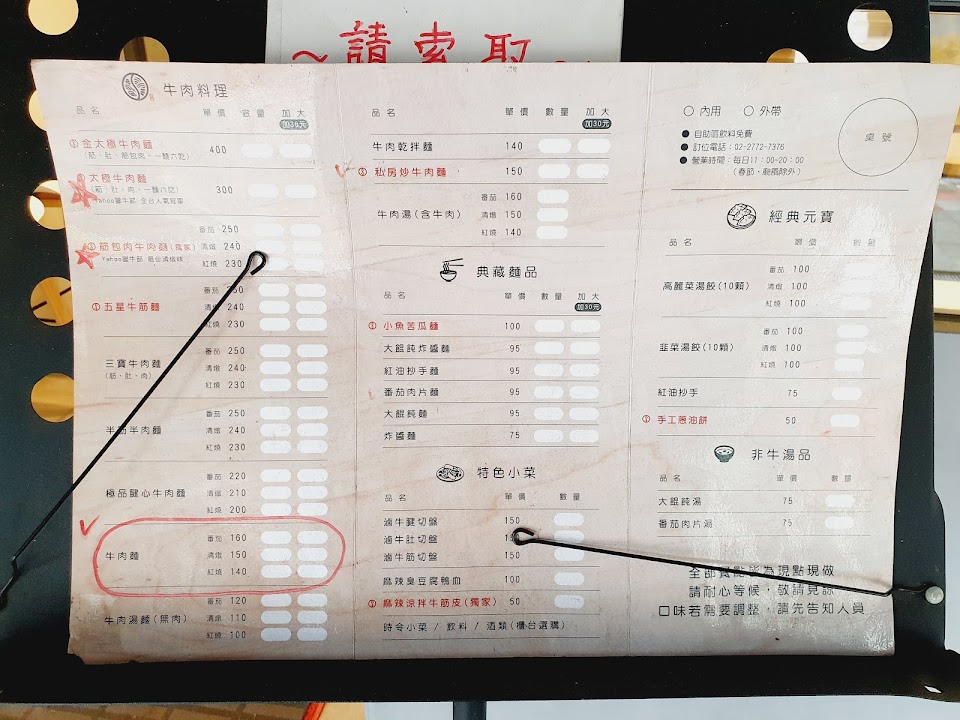 ~請索取
牛肉料理
品名 單價 數量 加大
加30元
金太極牛肉麵 400
(筋、肚、筋包肉、一麵六吃)
太極牛肉麵 300
(筋、肚、肉、一麵六吃)
Yahoo獵牛部 全台人氣冠軍
番茄 250
筋包肉牛肉麵(獨家) 清燉 240
紅燒 230
番茄 250
五星牛筋麵 清燉 240
紅燒 230
番茄 250
三寶牛肉麵 清燉 240
(筋、肚、肉)
紅燒 230
番茄 250
半筋半肉麵 清燉 240
紅燒 230
番茄 220
極品腱心牛肉麵 清燉 210
紅燒 200
番茄 160
牛肉麵 清燉 150
紅燒 140
番茄 120
牛肉湯麵(無肉) 清燉 110
紅燒 100
品名 單價 數量 加大
加30元
牛肉乾拌麵 140
私房炒牛肉麵 150
番茄 160
牛肉湯(含牛肉) 清燉 150
紅燒 140
典藏麵品
品名 單價 數量 加大
加30元
小魚苦瓜麵 100
大餛飩炸醬麵 95
紅油抄手麵 95
番茄肉片麵 95
大餛飩麵 95
炸醬麵 75
特色小菜
品名 單價 數量
滷牛腱切盤 150
滷牛肚切盤
滷牛筋切盤
麻辣臭豆腐鴨血 100
麻辣涼拌牛筋皮(獨家) 50
時令小菜 / 飲料 / 酒類(櫃台選購)
○ 內用 ○ 外帶
桌號
● 自助區飲料免費
● 訂位電話:02-2772-7376
● 營業時間:每日11:00-20:00
(春節、颱風除外)
經典元寶
品名 單價 數量
番茄 100
高麗菜湯餃(10顆) 清燉 100
紅燒 100
番茄 100
韭菜湯餃(10顆) 清燉 100
紅燒 100
紅油抄手 75
手工蔥油餅 50
非牛湯品
品名 單價 數量
大餛飩湯 75
番茄肉片湯 75
全部餐點皆為現點現做
請耐心等候,敬請見諒
口味若需要調整,請先告知人員